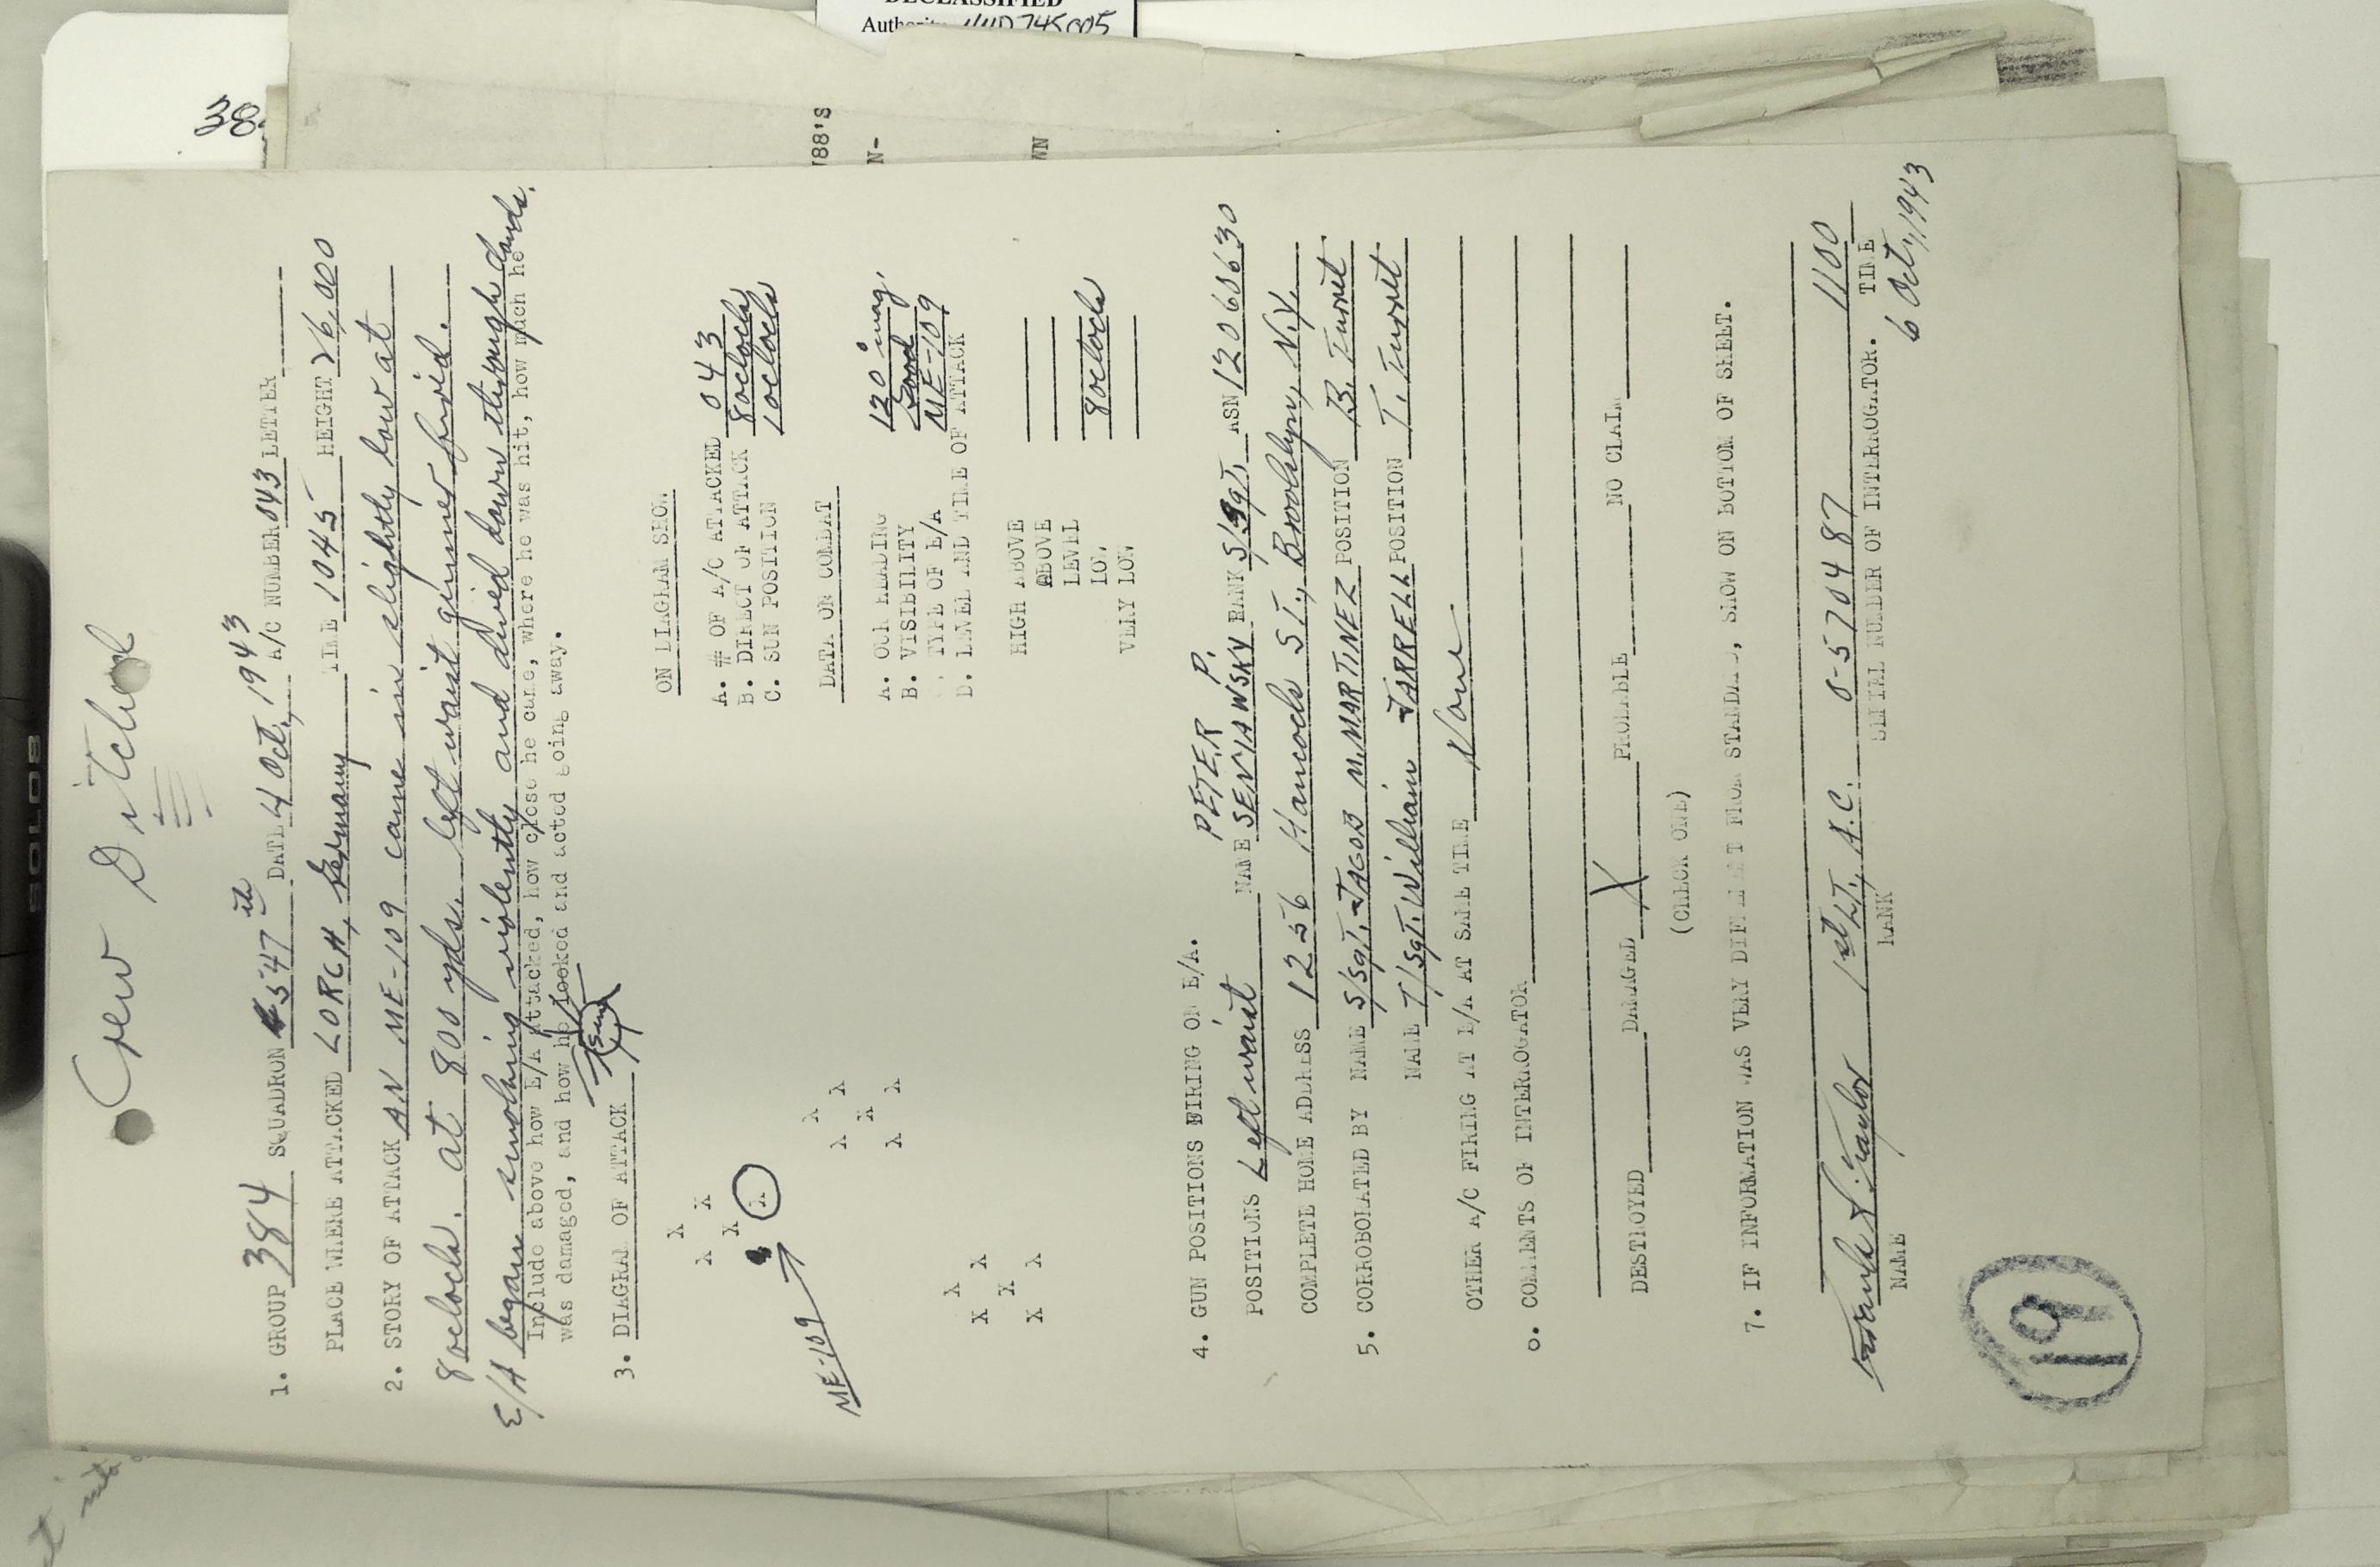 DECLASSIFIED
Authority NND 745005
38
188'S
N-
WN
Crew Ditched
1. GROUP 384 SQUADRON 547th DATE 4 Oct, 1943 A/C NUMBER 043 LETTER
PLACE WHERE ATTACKED LORCH, Germany TIME 1045 HEIGHT 26,000
2. STORY OF ATTACK AN ME-109 came in slightly low at
8 oclock. at 800 yds. left waist gunner fired.
E/A began smoking violently and dived down through clouds.
Include above how E/A attacked, how close he came, where he was hit, how much he
was damaged, and how he looked and acted going away.
3. DIAGRAM OF ATTACK
ON DIAGRAM SHOW
A. # OF A/C ATTACKED 043
B. DIRECT OF ATTACK 8 oclock
C. SUN POSITION 1 oclock
DATA ON COMBAT
A. OUR HEADING 120° mag.
B. VISIBILITY Good
C. TYPE OF E/A ME-109
D. LEVEL AND TIME OF ATTACK
HIGH ABOVE
ABOVE
LEVEL
LOW 8 oclock
VERY LOW
X
X X
X
X
X
X X
X
X X
X
X X
X
X X
ME-109
4. GUN POSITIONS FIRING ON E/A.
PETER P.
POSITIONS Left waist NAME SENIAWSKY RANK S/Sgt. ASN 12068630
COMPLETE HOME ADDRESS 1256 Hancock ST., Brooklyn, N.Y.
5. CORROBORATED BY NAME S/Sgt. JACOB M. MARTINEZ POSITION B. Turret
NAME T/Sgt. William JARRELL POSITION T. Turret
OTHER A/C FIRING AT E/A AT SAME TIME None
6. COMMENTS OF INTERROGATOR
DESTROYED DAMAGED X PROBABLE NO CLAIM
(CHECK ONE)
7. IF INFORMATION WAS VERY DIFFERENT FROM STANDARD, SHOW ON BOTTOM OF SHEET.
Frank L. Taylor 1st LT., A.C. 0-570487 1100
NAME RANK SERIAL NUMBER OF INTERROGATOR. TIME
6 Oct, 1943
19